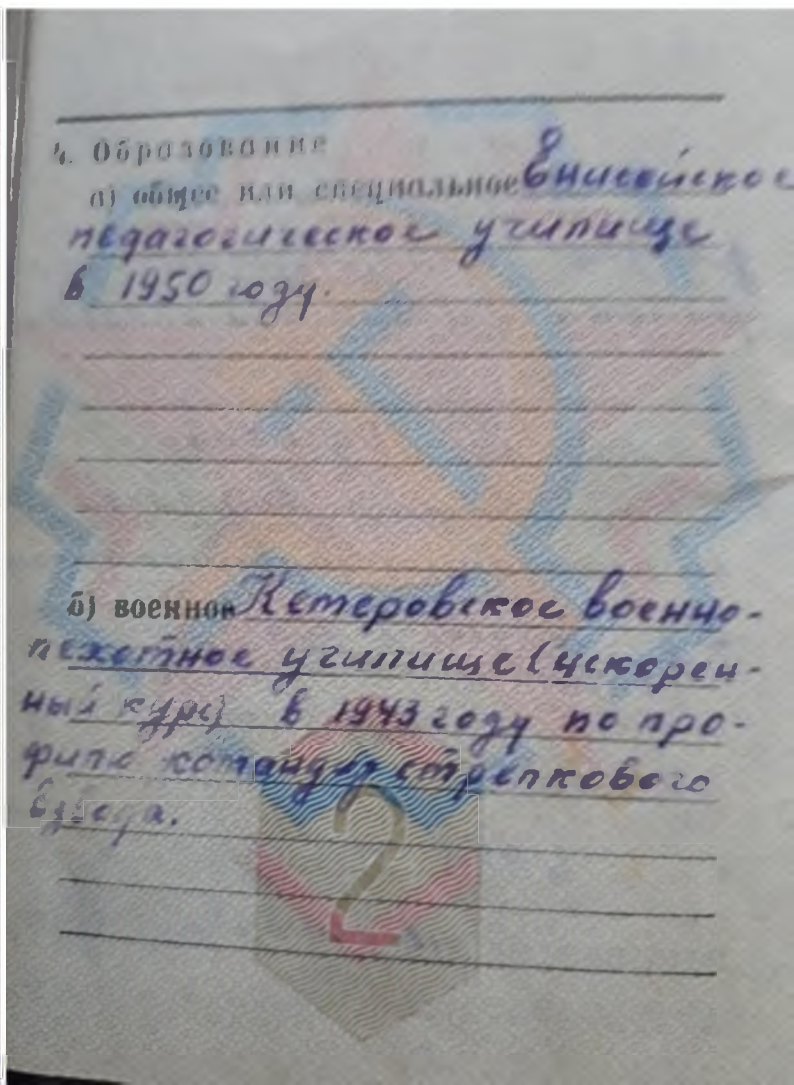 4. Образование
а) общее или специальное Енисейское
педагогическое училище
в 1950 году.
б) военное Кемеровское военно-
пехотное училище (ускорен-
ный курс) в 1943 году по про-
филю командир стрелкового
взвода.
2